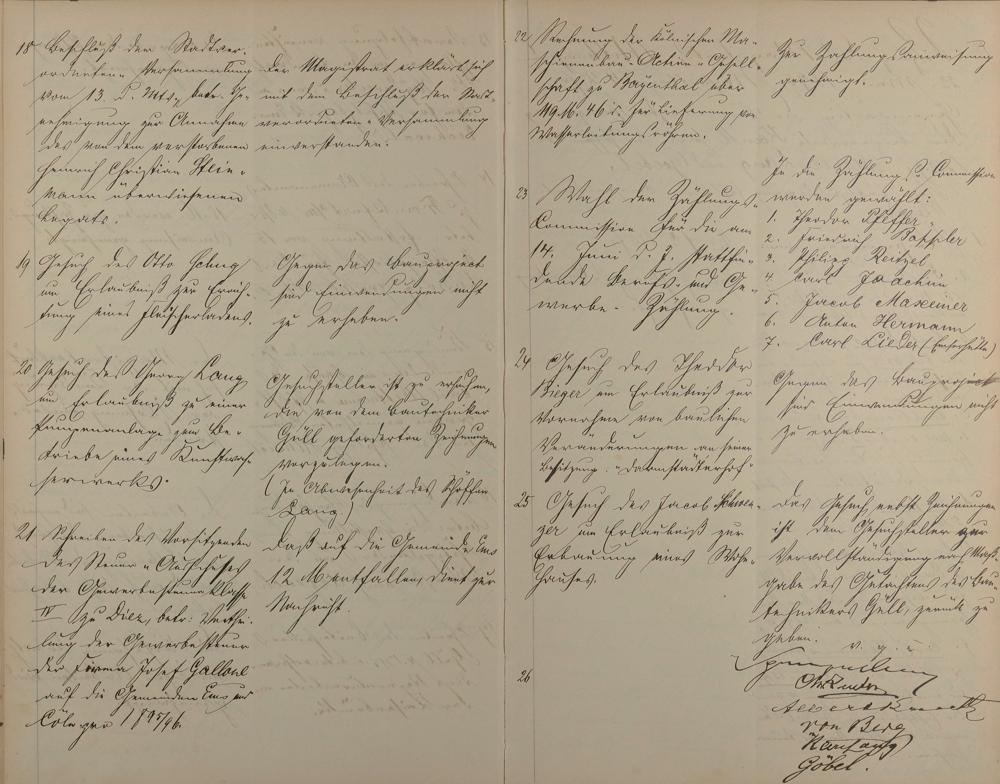 18 Beschluß der Stadtver-
ordneten-Versammlung
vom 13. d. Mts., betr. Ge-
nehmigung zur Annahme
des von dem verstorbenen
Heinrich Christian Stein-
mann überwiesenen
Legats.
Der Magistrat erklärt sich
mit dem Beschluß der Stadt-
verordneten-Versammlung
einverstanden.
19 Gesuch des Otto
um Erlaubniß zur Errich-
tung eines Fleischerladens.
Gegen das Bauproject
sind Einwendungen nicht
zu erheben.
20 Gesuch des Georg Lang
um Erlaubniß zu einer
Pumpenanlage zum Be-
triebe eines Kunstwas-
serwerks.
Gesuchsteller ist zu ersuchen,
die von dem Bautechniker
Güll geforderten Zeichnungen
vorzulegen.
(In Abwesenheit des Schöffen
Lang)
21 Schreiben des Vorsitzenden
des Steuer-Ausschusses
der Gewerbesteuerklasse
IV zu Diez, betr. Verthei-
lung der Gewerbesteuer
der Firma Josef Gallone
auf die Gemeinden Ems und
Cöln pro 1895/96.
Daß auf die Gemeinde Ems
12 M entfallen, dient zur
Nachricht.
22 Rechnung der Kölnischen Ma-
schinenbau-Actien-Gesell-
schaft zu Bayenthal über
119 M. 46 d. für Lieferung von
Wasserleitungsröhren.
Zur Zahlungsanweisung
genehmigt.
23 Wahl der Zählungs-
Commission für die am
14. Juni d. J. stattfin-
dende Berufs- und Ge-
werbe-Zählung.
In die Zählungs-Commission
werden gewählt:
1. Theodor Pfeffer
2. Friedrich
3. Philipp Reitzel
4. Carl Joachim
5. Jacob Maxeiner
6. Anton Hermann
7. Carl Lieder (Emserhütte)
24 Gesuch des Theodor
Bieger um Erlaubniß zur
Vornahme von baulichen
Veränderungen an seiner
Besitzung: "Darmstädterhof"
Gegen das Bauproject
sind Einwendungen nicht
zu erheben.
25 Gesuch des Jacob Schwei-
zer um Erlaubniß zur
Erbauung eines Wohn-
hauses.
Das Gesuch nebst Zeichnungen
ist dem Gesuchsteller zur
Vervollständigung nach Maß-
gabe des Gutachtens des Bau-
technikers Güll, zurück zu
geben.
v. g. u.
26
von Berg
Göbel.